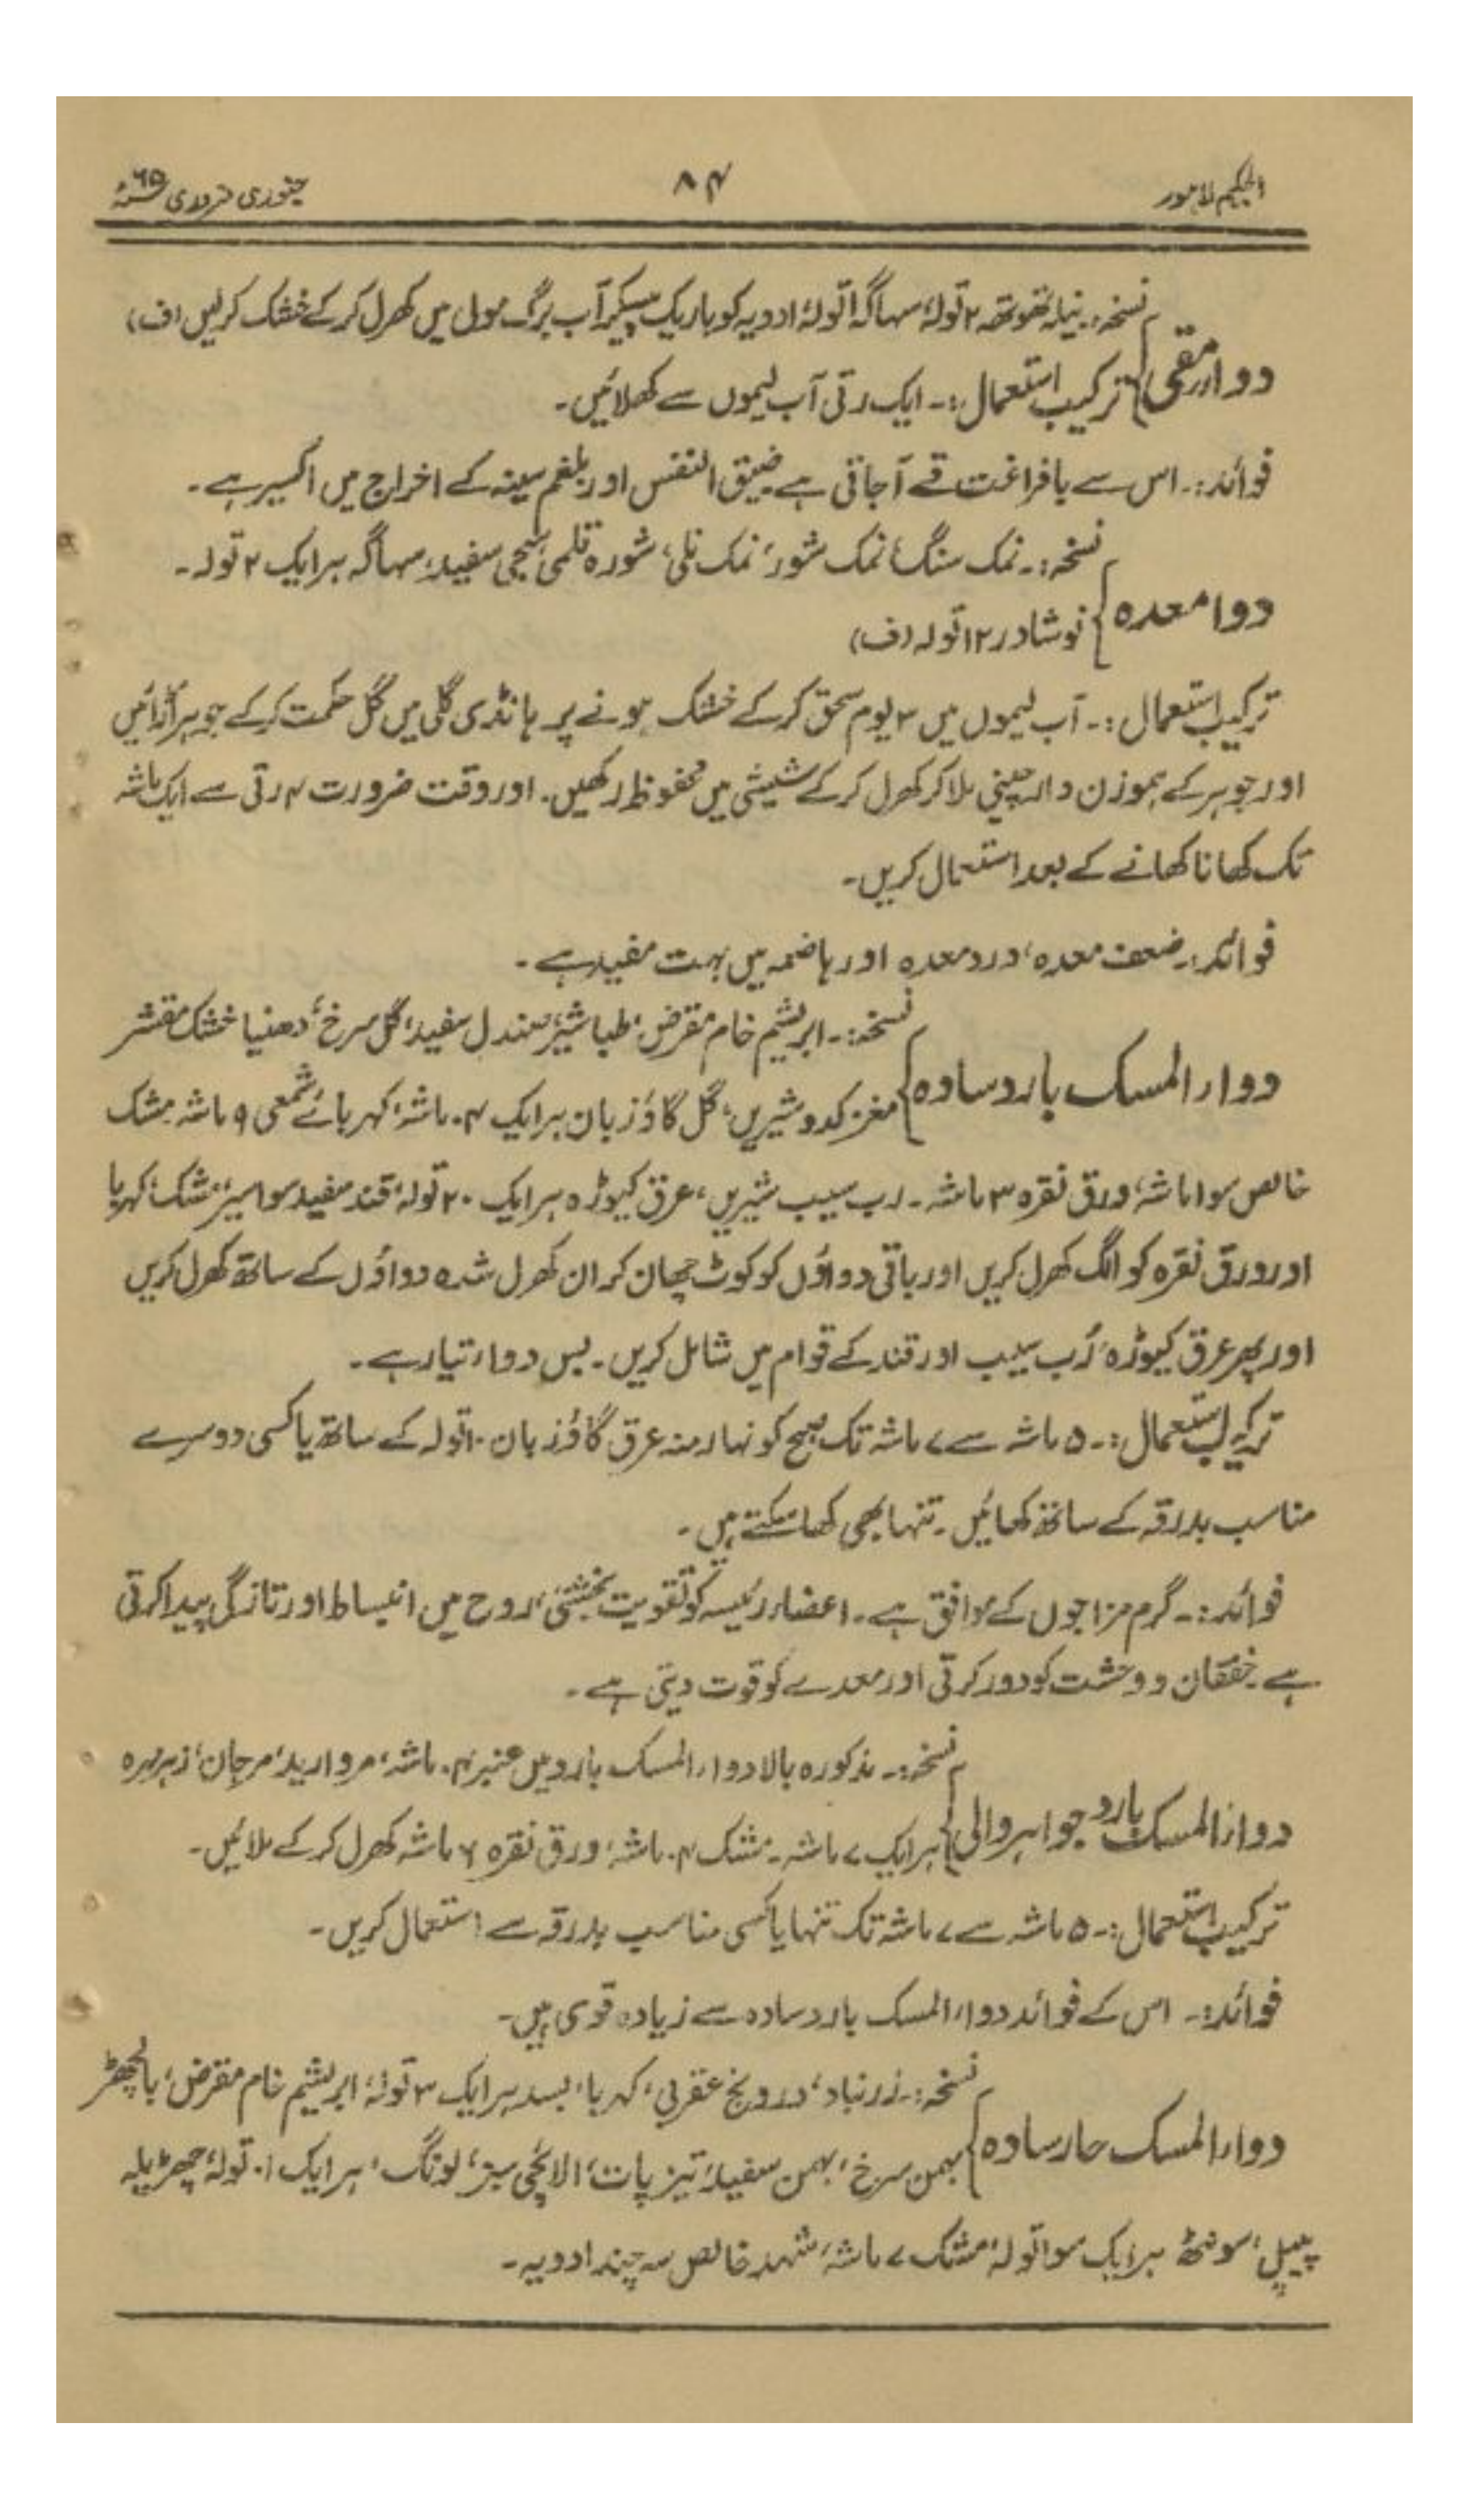 الحکیم لاہور
۸۴
جنوری فروری ۶۵ء
نسخہ:۔ نیلہ تھوتھہ ۲ تولہ، سہاگہ ا تولہ، ادویہ کو باریک پیسکر آب برگ مول میں کھرل کر کے خشک کر لیں (ف)
دواء مقی
ترکیب استعمال:۔ ایک رتی آب لیموں سے کھلائیں۔
فوائد:۔ اس سے بافراغت قے آجاتی ہے ضیق النفس اور بلغم سینہ کے اخراج میں اکسیر ہے۔
نسخہ:۔ نمک سنگ، نمک شور، نمک نلی، شورہ قلمی، سجی سفید، سہاگہ ہر ایک ۲ تولہ۔
دوا معدہ
نوشادر ۱۲ تولہ (ف)
ترکیب استعمال:۔ آب لیموں میں ۲ یوم سحق کر کے خشک ہونے پر ہانڈی گلی میں گل حکمت کر کے جوہر اڑائیں
اور جوہر کے ہموزن دارچینی ملا کر کھرل کر کے شیشی میں محفوظ رکھیں۔ اور وقت ضرورت ۴ رتی سے ایک ماشہ
تک کھانا کھانے کے بعد استعمال کریں۔
فوائد:۔ ضعف معدہ، درد معدہ اور ہاضمہ میں بہت مفید ہے۔
نسخہ:۔ ابریشم خام مقرض، طباشیر، صندل سفید، گل سرخ، دھنیا خشک مقشر
دواء المسک بارد سادہ
مغز کدو شیریں، گل گاؤزبان ہر ایک ۴۰ ماشہ، کہربائے شمعی ۹ ماشہ مشک
خالص سوا ماشہ، ورق نقرہ ۳ ماشہ۔ رب سیب شیریں، عرق کیوڑہ ہر ایک ۲۰ تولہ، قند سفید سوا سیر، مشک، کہربا
اور ورق نقرہ کو الگ کھرل کریں اور باقی دواؤں کو کوٹ چھان کر ان کھرل شدہ دواؤں کے ساتھ کھرل کریں
اور پھر عرق کیوڑہ، رُب سیب اور قند کے قوام میں شامل کریں۔ بس دواء تیار ہے۔
ترکیب استعمال:۔ ۵ ماشہ سے ۷ ماشہ تک صبح کو نہار منہ عرق گاؤزبان ۱۰ تولہ کے ساتھ یا کسی دوسرے
مناسب بدرقہ کے ساتھ کھائیں۔ تنہا بھی کھا سکتے ہیں۔
فوائد:۔ گرم مزاجوں کے موافق ہے۔ اعضاء رئیسہ کو تقویت بخشتی، روح میں انبساط اور تازگی پیدا کرتی
ہے خفقان و وحشت کو دور کرتی اور معدے کو قوت دیتی ہے۔
نسخہ:۔ مذکورہ بالا دواء المسک بارد میں عنبر ۴۰ ماشہ، مروارید، مرجان، زہر مہرہ
دواء المسک بارد جواہر والی
ہر ایک ۷ ماشہ۔ مشک ۴۰ ماشہ، ورق نقرہ ۶ ماشہ کھرل کر کے ملائیں۔
ترکیب استعمال:۔ ۵ ماشہ سے ۷ ماشہ تک تنہا یا کسی مناسب بدرقہ سے استعمال کریں۔
فوائد:۔ اس کے فوائد دواء المسک بارد سادہ سے زیادہ قوی ہیں۔
نسخہ:۔ زرنباد، درونج عقربی، کہربا، بسد ہر ایک ۳ تولہ، ابریشم خام مقرض، بالچھڑ
دواء المسک حار سادہ
بہمن سرخ، بہمن سفید، تیز پات، الائچی سبز، لونگ، ہر ایک ۱۰ تولہ، چھڑیلہ
پیپل، سونٹھ ہر ایک سوا تولہ، مشک ۷ ماشہ، شہد خالص سہ چند ادویہ۔